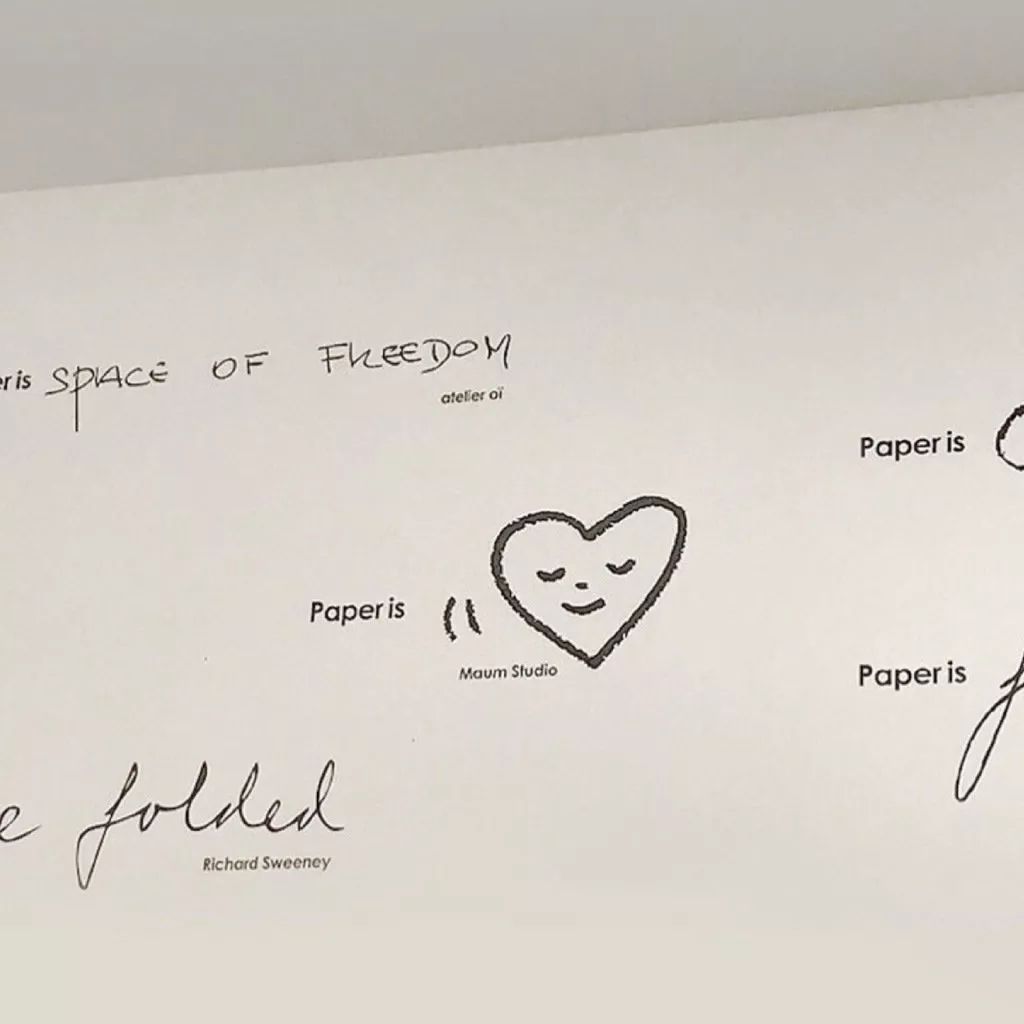 er is SPACE OF FREEDOM
atelier oï
Paper is
Paper is
Maum Studio
Paper is
e folded
Richard Sweeney